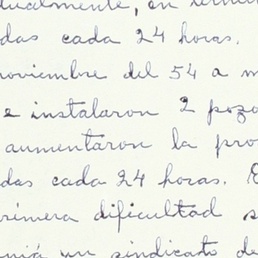 dualmente, en
das cada 24 horas.
noviembre del 54 a m
e instalaron 2 pozo
aumentaron la pro
das cada 24 horas. E
rimera dificultad s
un sindicato de